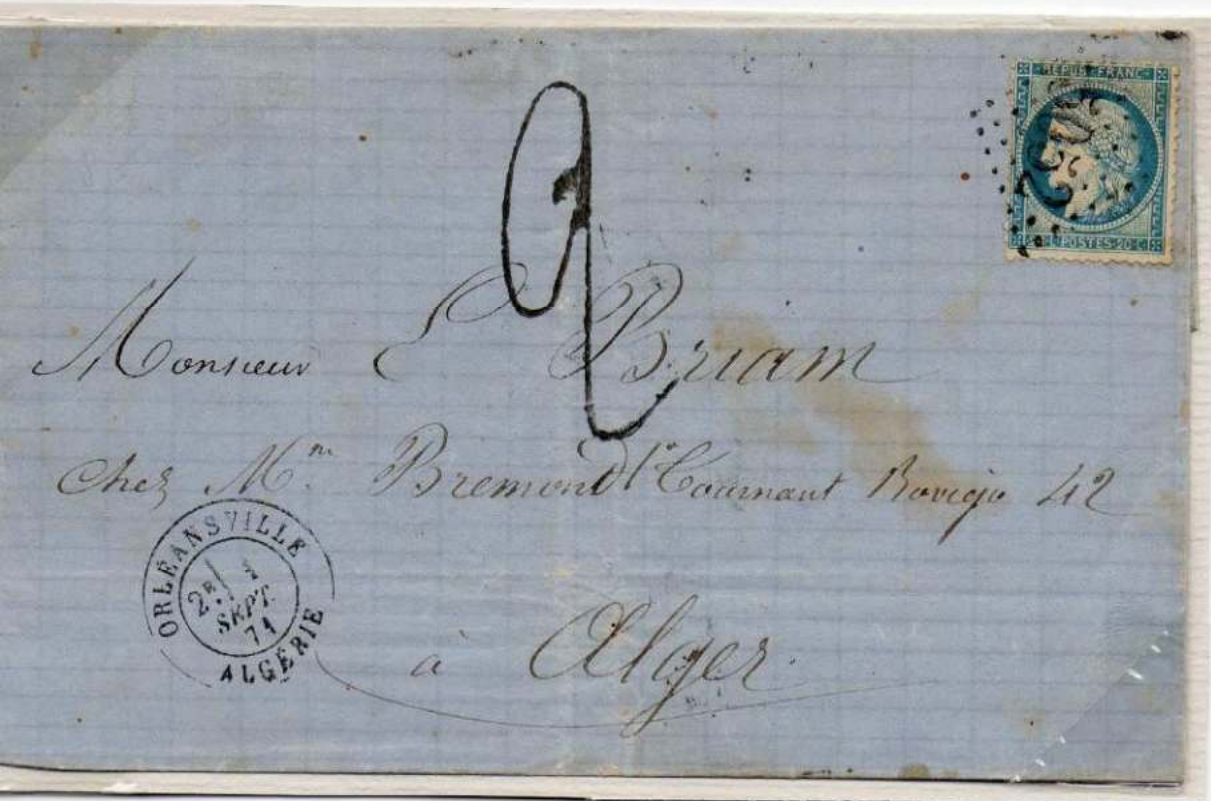 REPUB·FRANC·
POSTES·20·C
2
Monsieur E Briam
chez Mm Bremond Tournant Rovigo 42
à Alger
ORLÉANSVILLE
2E 1
SEPT.
71
ALGÉRIE